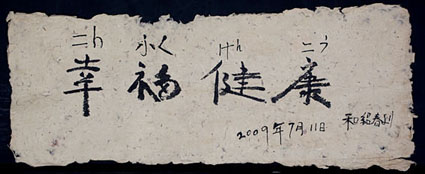 ふく けん こう
幸福健康
2009年7月11日 和